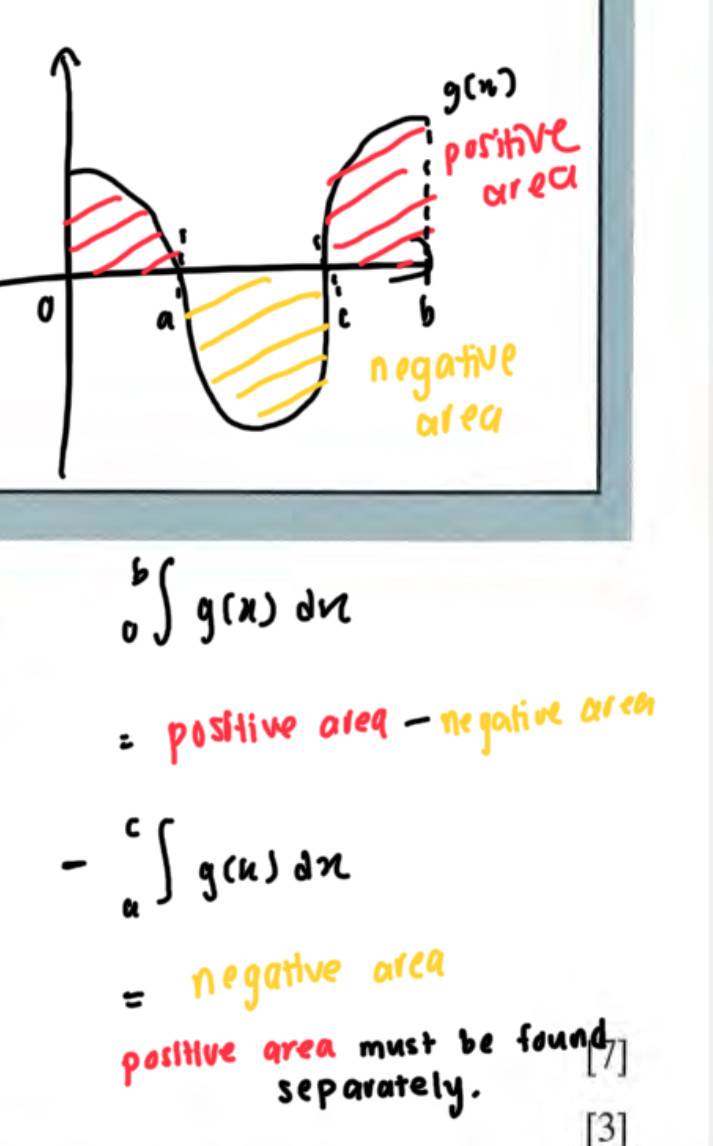 g(x)
positive
area
0
a
c
b
negative
area
b
0 ∫ g(x) dx
= positive area - negative area
c
- ∫ g(x) dx
a
= negative area
positive area must be found
[7]
separately.
[3]